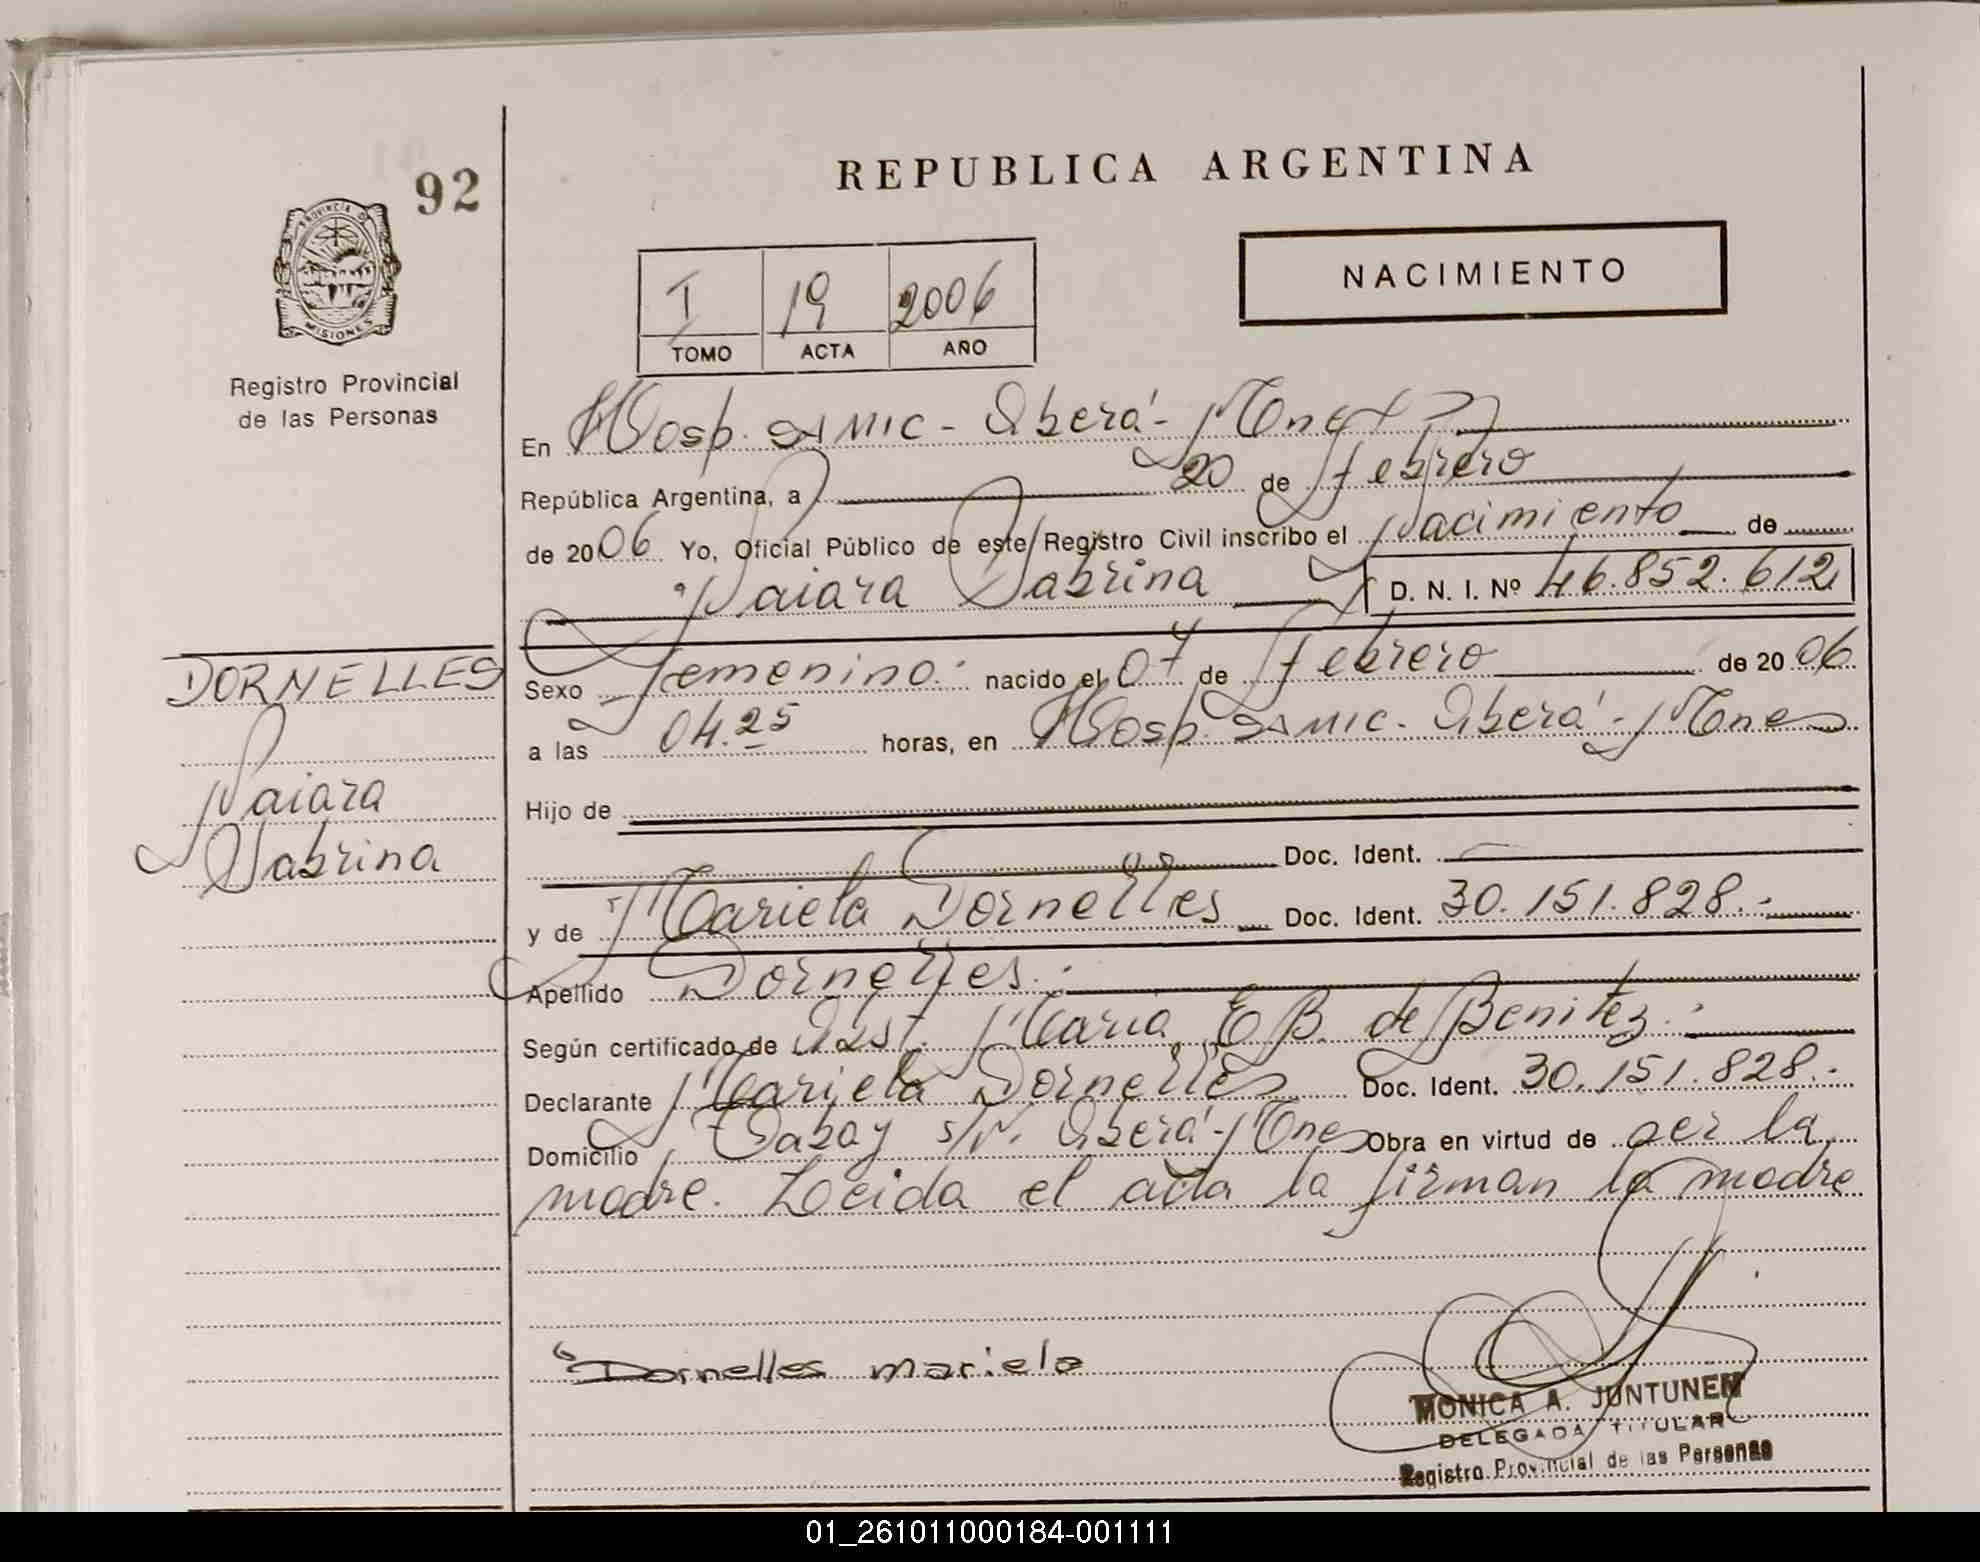 92
REPUBLICA ARGENTINA
PROVINCIA D
MISIONES
Registro Provincial
de las Personas
I 19 2006
TOMO ACTA AÑO
NACIMIENTO
En Hosp. SAMIC - Oberá - Mnes
República Argentina, a 20 de Febrero
de 2006 Yo, Oficial Público de este Registro Civil inscribo el Nacimiento de
Naiara Sabrina D. N. I. Nº 46.852.612
DORNELLES
Naiara
Sabrina
Sexo Femenino.- nacido el 07 de Febrero de 2006
a las 04.25 horas, en Hosp. SAMIC - Oberá - Mnes
Hijo de
Doc. Ident.
y de Mariela Dornelles Doc. Ident. 30.151.828.-
Apellido Dornelles.-
Según certificado de Obst. Maria E B. de Benitez.-
Declarante Mariela Dornelles Doc. Ident. 30.151.828.-
Domicilio Tabay s/n. Oberá - Mnes Obra en virtud de ser la
madre. Leida el acta la firman la madre
Dornelles mariela
MONICA A. JUNTUNEN
DELEGADA TITULAR
Registro Provincial de las Personas
01_261011000184-001111